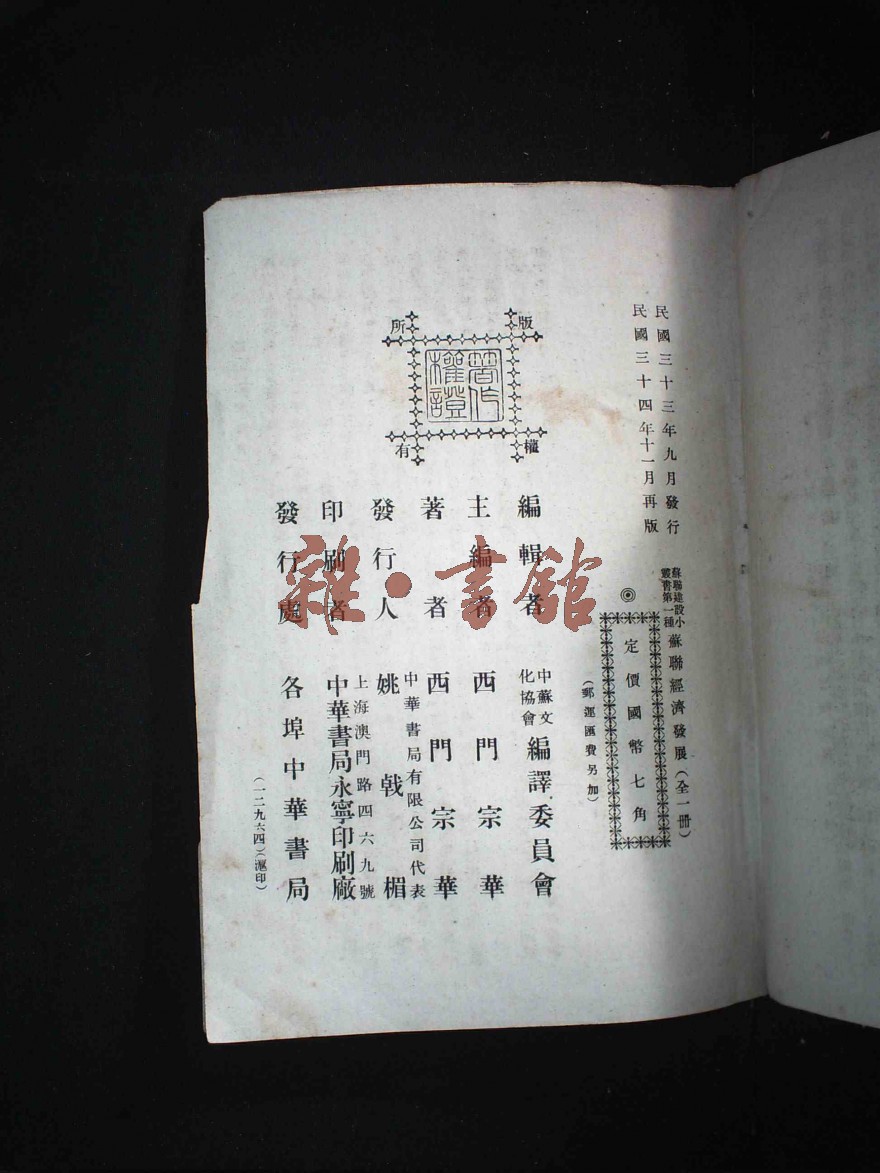 民國三十三年九月發行
民國三十四年十一月再版
蘇聯建設小
叢書第一種
蘇聯經濟發展(全一冊)
◎
定價國幣七角
(郵運匯費另加)
版權所有
著作權證
編輯者 中蘇文化協會編譯委員會
主編者 西門宗華
著者 西門宗華
發行人 中華書局有限公司代表
姚戟楣
印刷者 上海澳門路四六九號
中華書局永寧印刷廠
發行處 各埠中華書局
(一二九六四)(滬印)
雜·書館